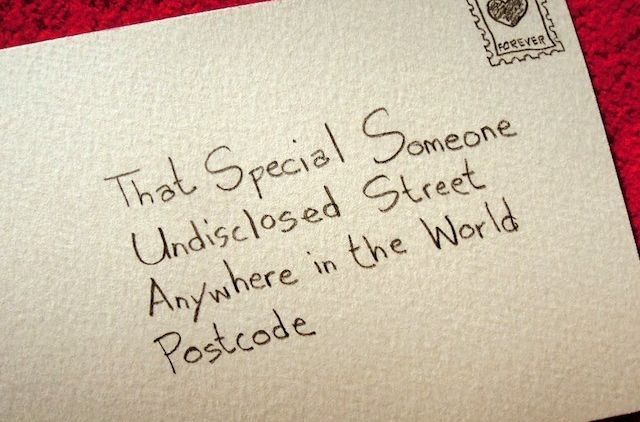 FOREVER
That Special Someone
Undisclosed Street
Anywhere in the World
Postcode